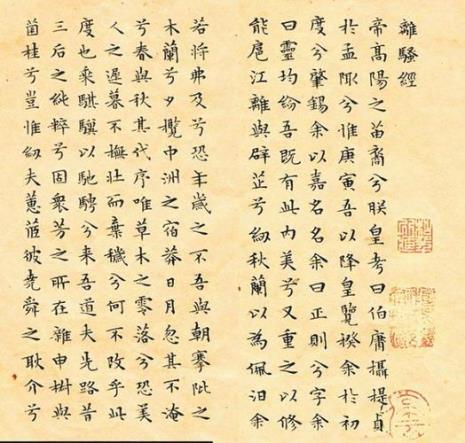 離騷經
帝高陽之苗裔兮朕皇考曰伯庸攝提貞
於孟陬兮惟庚寅吾以降皇覽揆余於初
度兮肇錫余以嘉名名余曰正則兮字余
曰靈均紛吾既有此內美兮又重之以修
能扈江離與辟芷兮紉秋蘭以為佩汨余
若將弗及兮恐年歲之不吾與朝搴阰之
木蘭兮夕攬中洲之宿莽日月忽其不淹
兮春與秋其代序唯草木之零落兮恐美
人之遲暮不撫壯而棄穢兮何不改乎此
度也乘騏驥以馳騁兮來吾道夫先路昔
三后之純粹兮固衆芳之所在雜申椒與
菌桂兮豈惟紉夫蕙茝彼堯舜之耿介兮